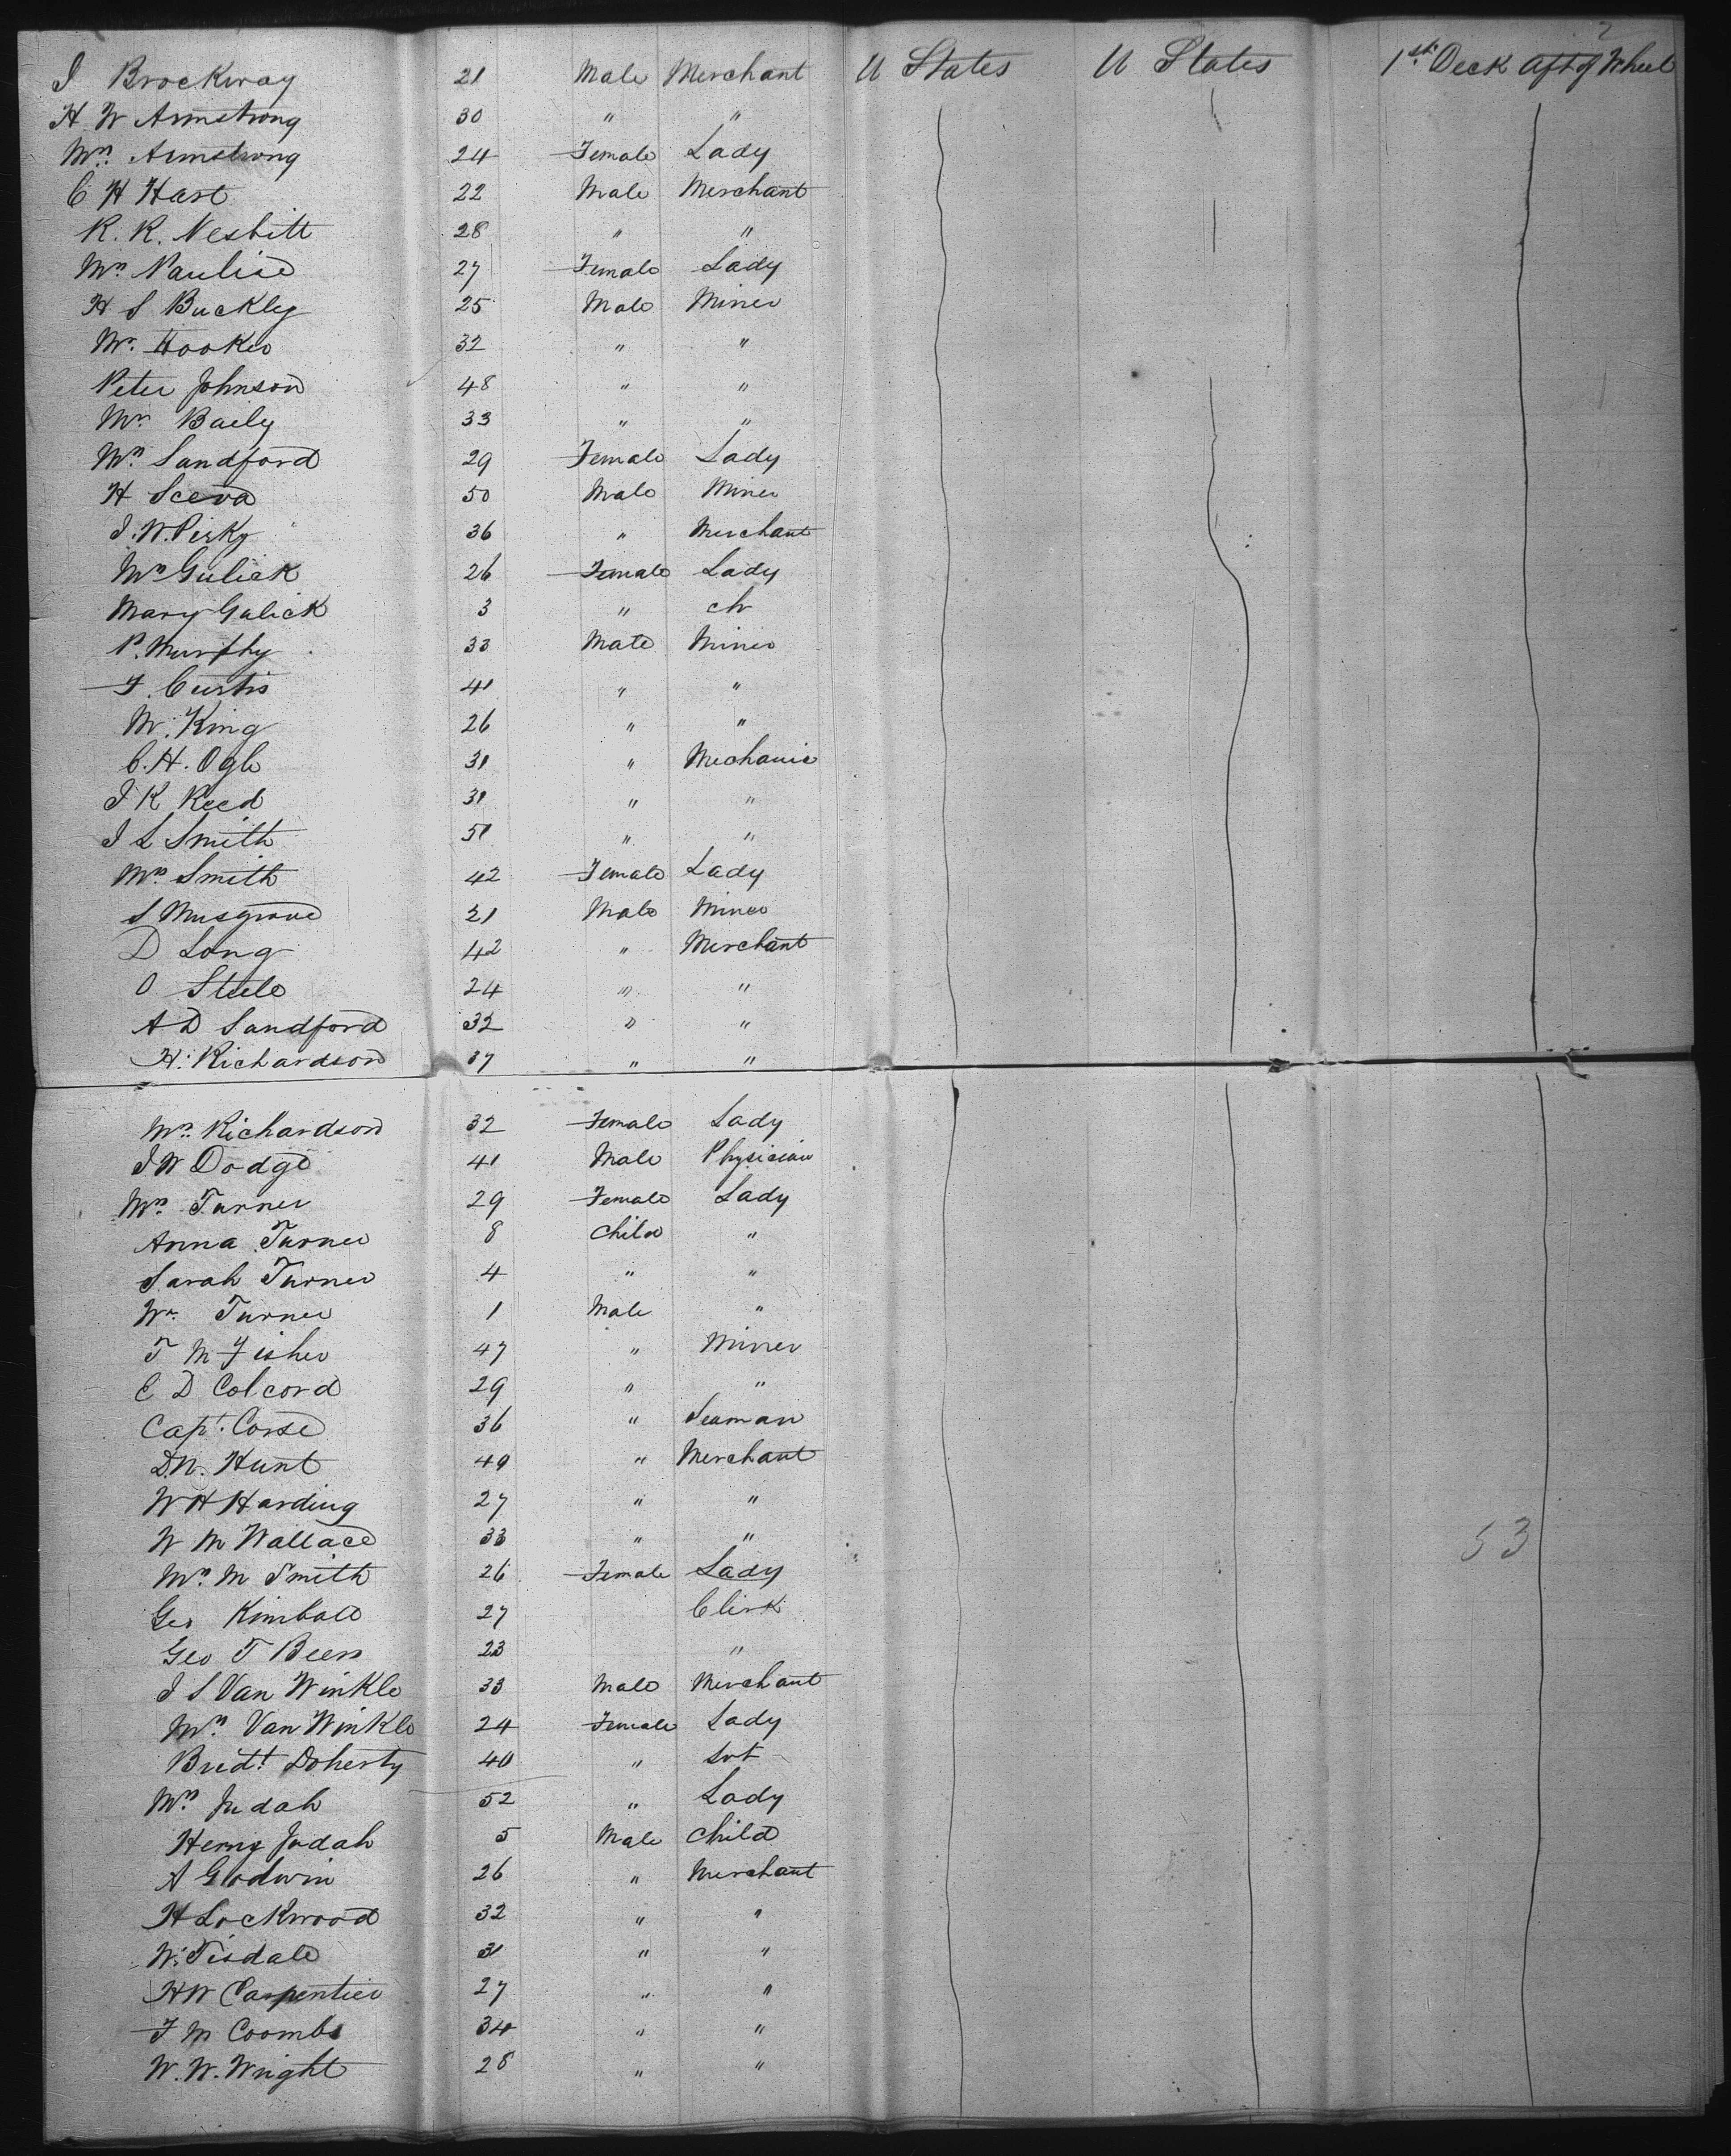 2
J Brockway 21 Male Merchant U States U States 1st Deck aft of Wheel
H W Armstrong 30 " "
Mrs. Armstrong 24 Female Lady
C H Hart 22 Male Merchant
R. R. Nesbitt 28 " "
Mrs 27 Female Lady
H S Buckley 25 Male Miner
Mr. Hooker 32 " "
Peter Johnson 48 " "
Mr. Baily 33 " "
Mrs. Sandford 29 Female Lady
H Sceva 50 Male Miner
J. W. Pisky 36 " Merchant
Mrs Gulick 26 Female Lady
Mary Gulick 3 " ch
P. Murphy 33 Male Miner
F. Curtis 41 " "
M. King 26 " "
C. H. Ogle 31 " Mechanic
J K Reed 31 " "
J L Smith 51 " "
Mrs. Smith 42 Female Lady
S Musgrove 21 Male Miner
D Long 42 " Merchant
O Steele 24 " "
A D Sandford 32 " "
H. Richardson 37 " "
Mrs. Richardson 32 Female Lady
J W Dodge 41 Male Physician
Mrs. Turner 29 Female Lady
Anna Turner 8 Child "
Sarah Turner 4 " "
Wm. Turner 1 Male "
T M Fisher 47 " Miner
E D Colcord 29 " "
Capt. Corse 36 " Seaman
D. N. Hunt 49 " Merchant
W H Harding 27 " "
W M Wallace 33 " "
53
Mrs. M Smith 26 Female Lady
Geo Kimball 27 Clerk
Geo T Beers 23 "
J S Van Winkle 33 Male Merchant
Mrs. Van Winkle 24 Female Lady
Bridt. Doherty 40 " Svt
Mrs. Judah 52 " Lady
Henry Judah 5 Male Child
A Godwin 26 " Merchant
H Lockwood 32 " "
W. Tisdale 31 " "
H W Carpentier 27 " "
F M Coombs 34 " "
W. W. Wright 28 " "